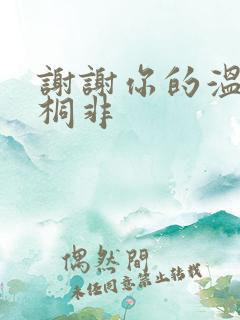 謝謝你的溫
桐非
偶然間
未經同意禁止轉載